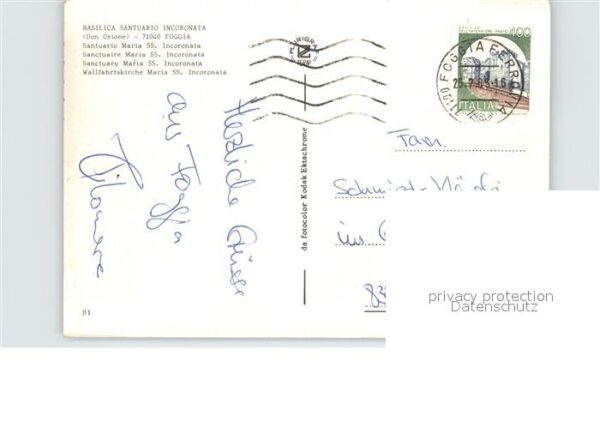 BASILICA SANTUARIO INCORONATA
(Don Orione) - 71040 FOGGIA
Santuario Maria SS. Incoronata
Sanctuaire Maria SS. Incoronata
Sanctuary Maria SS. Incoronata
Wallfahrtskirche Maria SS. Incoronata
400
ITALIA
FOGGIA FERROVIA
71100
da fotocolor Kodak Ektachrome
Herzliche Grüsse
aus Foggia
Filomena
Fam.
81
privacy protection
Datenschutz